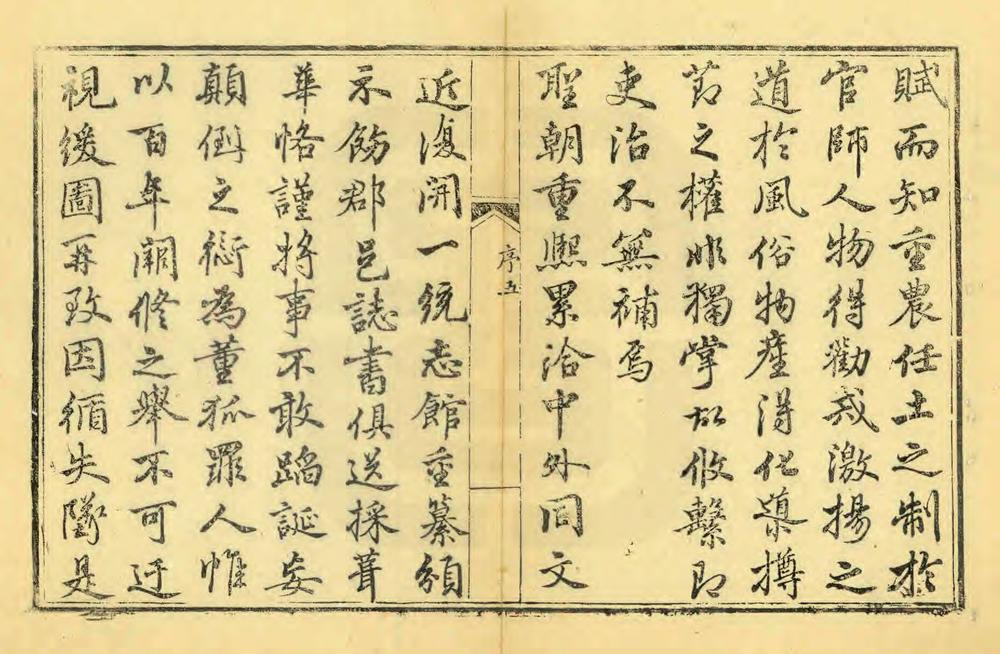 賦而知重農任土之制於
官師人物得勸戒激揚之
道於風俗物產得伦㮚撙
節之權非獨掌故攸繫即
吏治不無補焉
聖朝重熙累洽中外同文
序五
近復開一統志館重纂頒
示飭郡邑誌書俱送採葺
華恪謹將事不敢蹈誕妄
顛倒之愆為董狐罪人惟
以百年闕修之舉不可迂
視緩圖再致因循失墜是